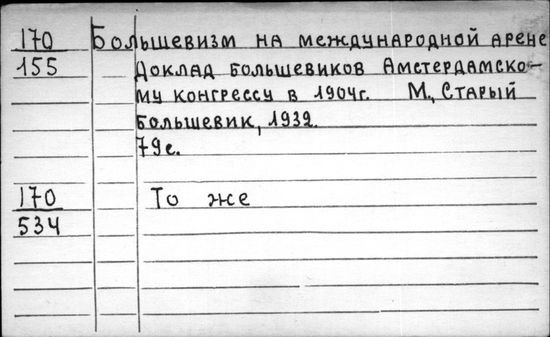 170 Большевизм на международной арене
155 Доклад большевиков Амстердамско-
му конгрессу в 1904г. М., Старый
большевик, 1932.
79с.
170 То же
534